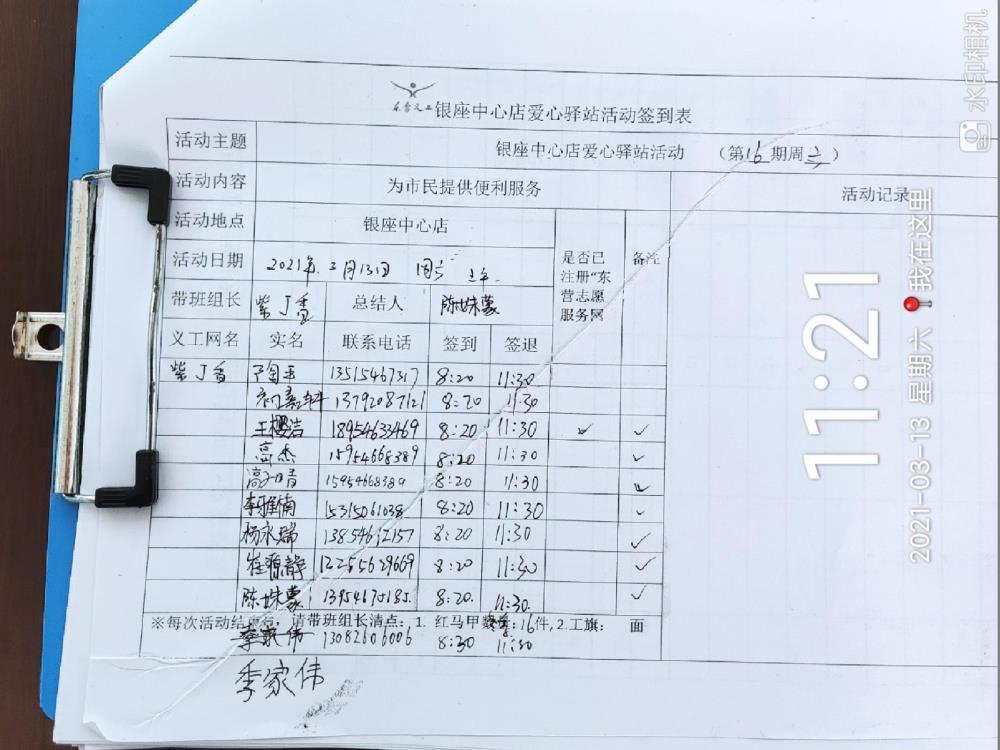 东营义工 银座中心店爱心驿站活动签到表
活动主题 银座中心店爱心驿站活动 (第16期周六)
活动内容 为市民提供便利服务 活动记录
活动地点 银座中心店 是否已注册“东营志愿服务网 备注
活动日期 2021年.3月13日 周六 上午.
带班组长 紫丁香 总结人 陈姝蒙
义工网名 实名 联系电话 签到 签退
紫丁香 陶玉 13515467317 8:20 11:30
13792087121 8:20 11:30
王樱洁 18954633469 8:20 11:30 ✓ ✓
高杰 15954668389 8:20 11:30 ✓
15954668389 8:20 11:30 ✓
李雅楠 15315061038 8:20 11:30 ✓
杨永瑞 13854612157 8:20 11:30 ✓
崔源静 8:20 11:30 ✓
陈姝蒙 8:20. 11:30. ✓
※每次活动结束后,请带班组长清点:1. 红马甲数量:16件,2.工旗: 面
季家伟 13082606006 8:30 11:30
季家伟
水印相机
11:21
2021-03-13 星期六 我在这里